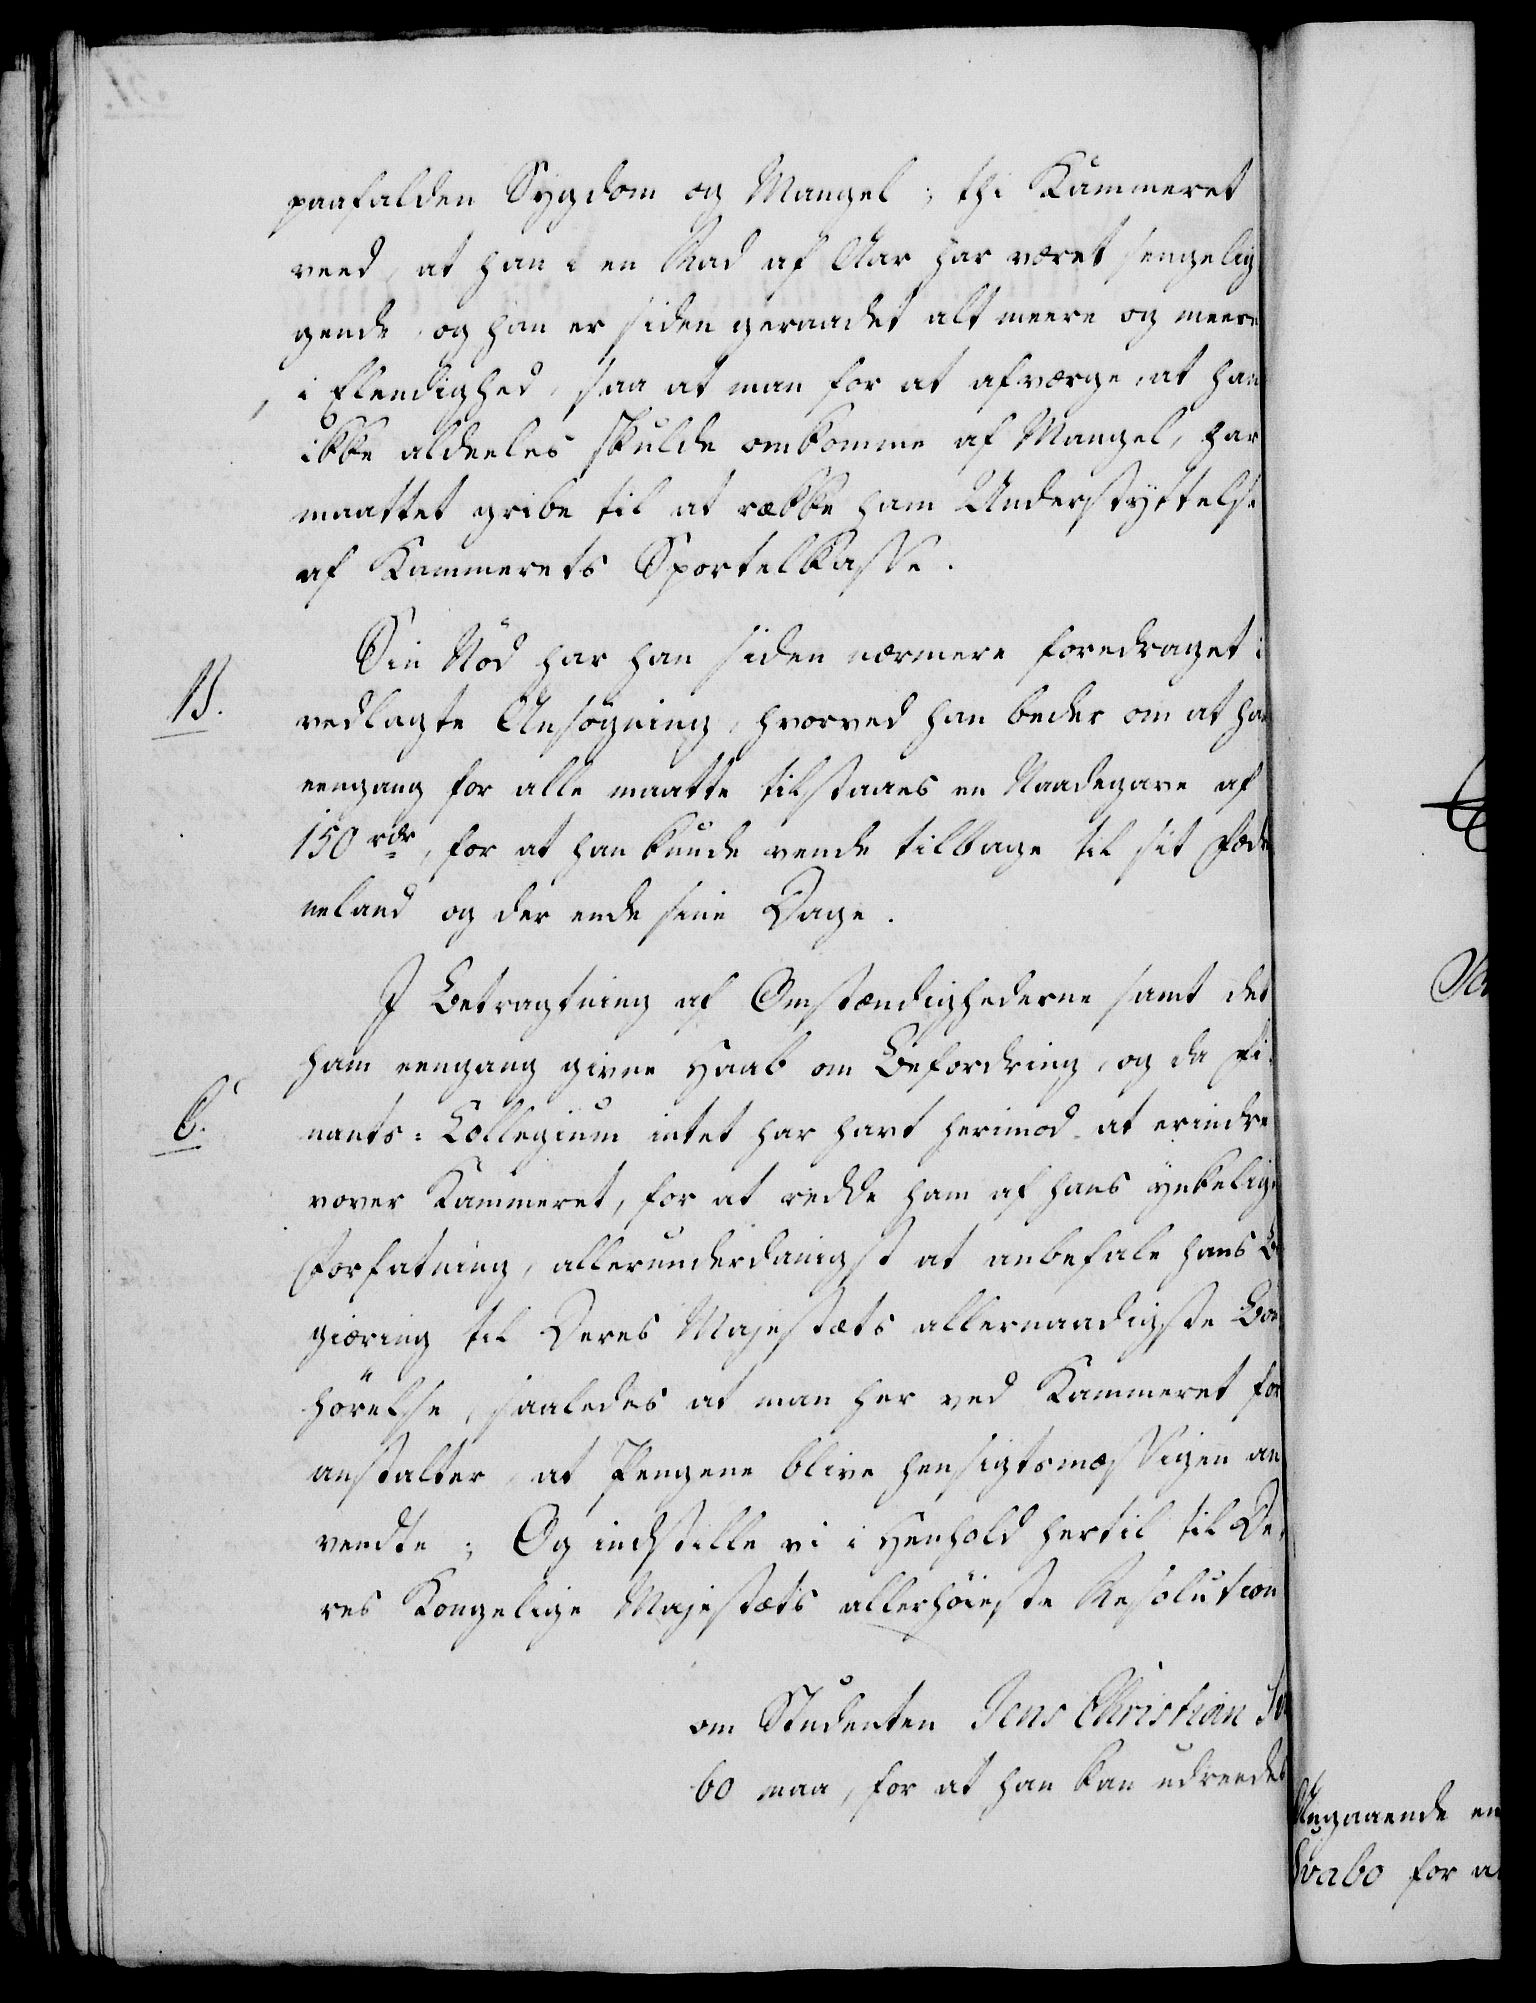 paafalden Sygdom og Mangel; thi Kammeret
veed, at han i en Rad af Aar har været sengelig
gende, og han er siden geraadet alt meere og meere
i Elendighed, saa at man for at afværge, at han
ikke aldeeles skulde omkomme af Mangel, har
maattet gribe til at række ham Understyttelse
af Kammerets Sportelkasse.
Sin Nød har han siden nærmere foredraget i
B.
vedlagte Ansøgning, hvorved han beder om at han
eengang for alle maatte tilstaaes en Naadegave af
150 rdr, for at han kunde vende tilbage til sit Føde
neland og der ende sine Dage.
I Betragtning af Omstændighederne samt det
ham eengang givne Haab om Befordring, og da Fi-
C.
nants-Collegium intet har havt herimod at erindre
vover Kammeret, for at redde ham af hans ynkelige
Forfatning, allerunderdanigst at anbefale hans Be
giæring til Deres Majestæts allernaadigste Bøn
hørelse, saaledes at man her ved Kammeret for
anstalter, at Pengene blive hensigtsmæssigen an
vendte; Og indstille vi i Henhold hertil til De-
res Kongelige Majestæts allerhøieste Resolution
om Studenten Jens Christian Sv
bo maa, for at han kan udreedes
Angaaende en
Svabo for a